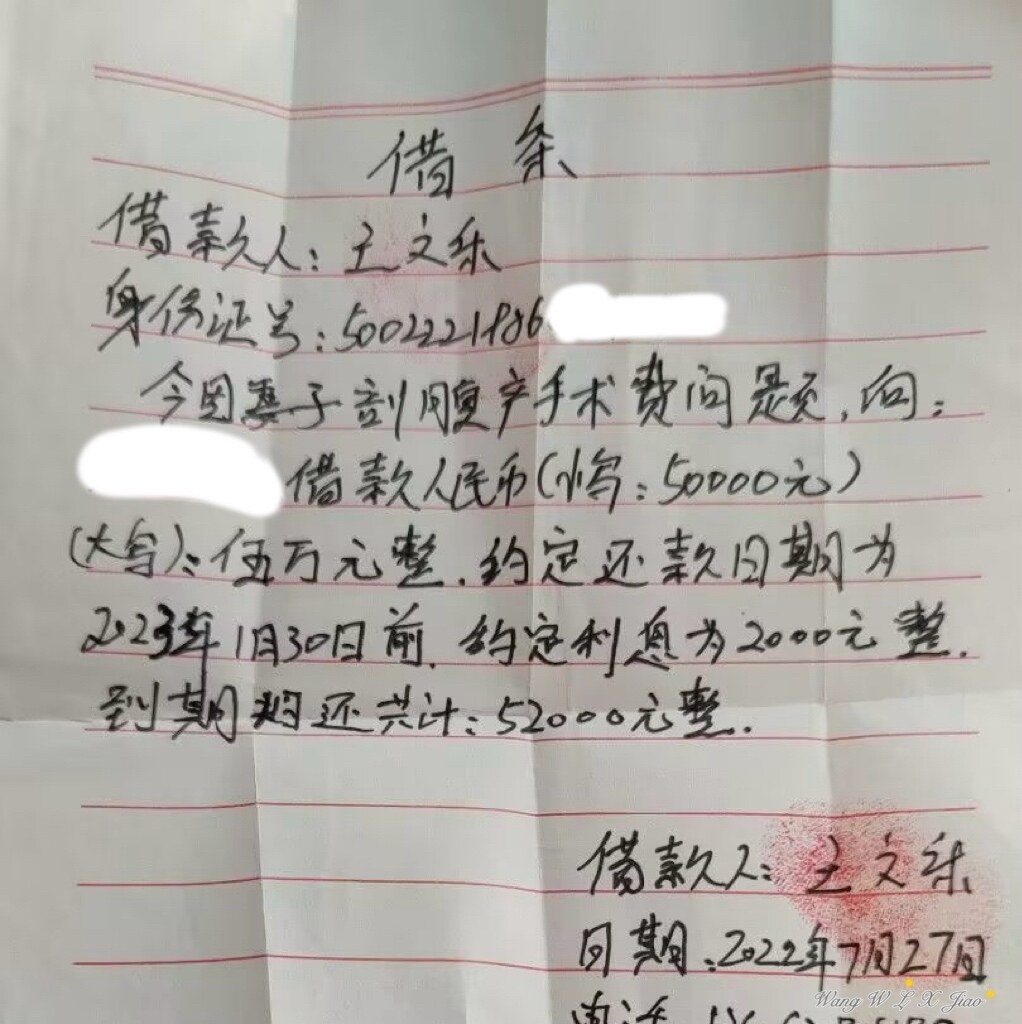 借条
借款人：王文乐
身份证号：5002221986
今因妻子剖腹产手术费问题，向：
借款人民币（小写：50000元）
（大写）：伍万元整．约定还款日期为
2023年1月30日前．约定利息为2000元整．
到期归还共计：52000元整．
借款人：王文乐
日期：2022年7月27日
电话
Wang W L X Jiao